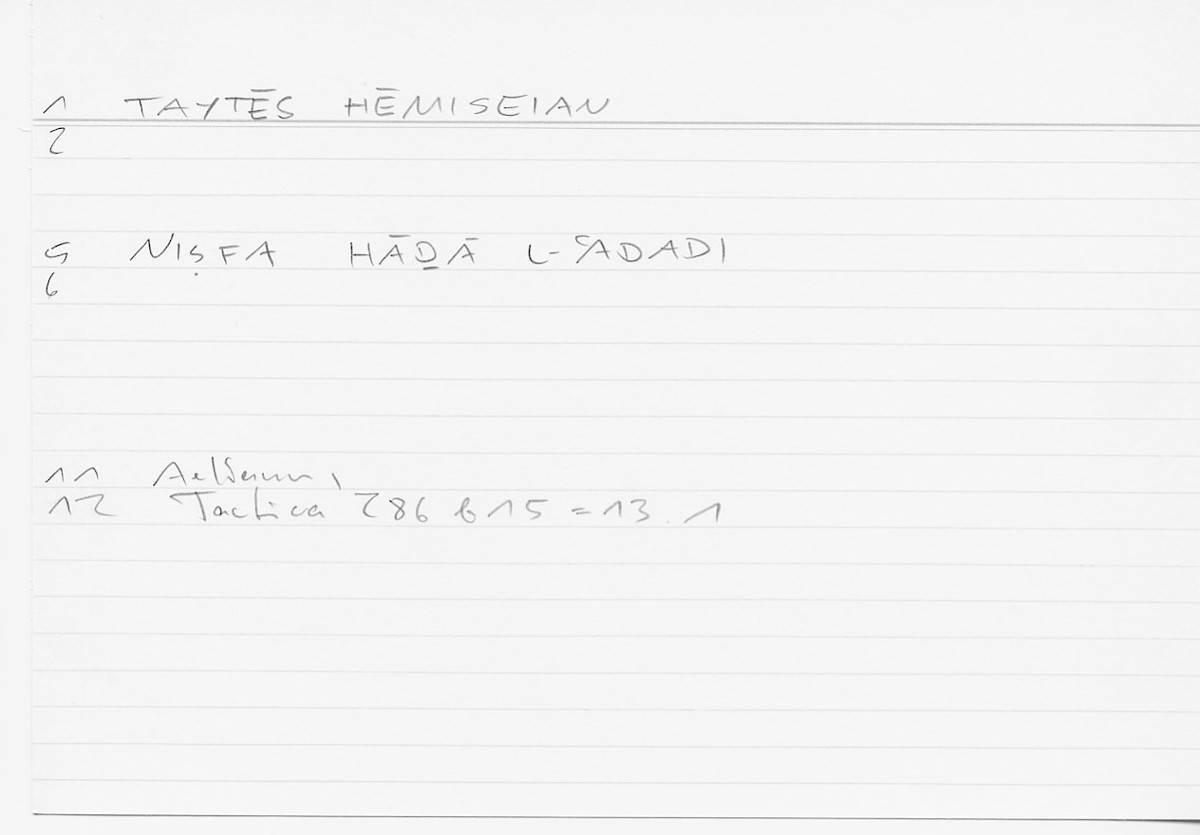 1 TAYTĒS HĒMISEIAN
2
5 NIṢFA HĀḎĀ L-ʿADADI
6
11 Aelianus,
12 Tactica 286 b 15 = 13.1